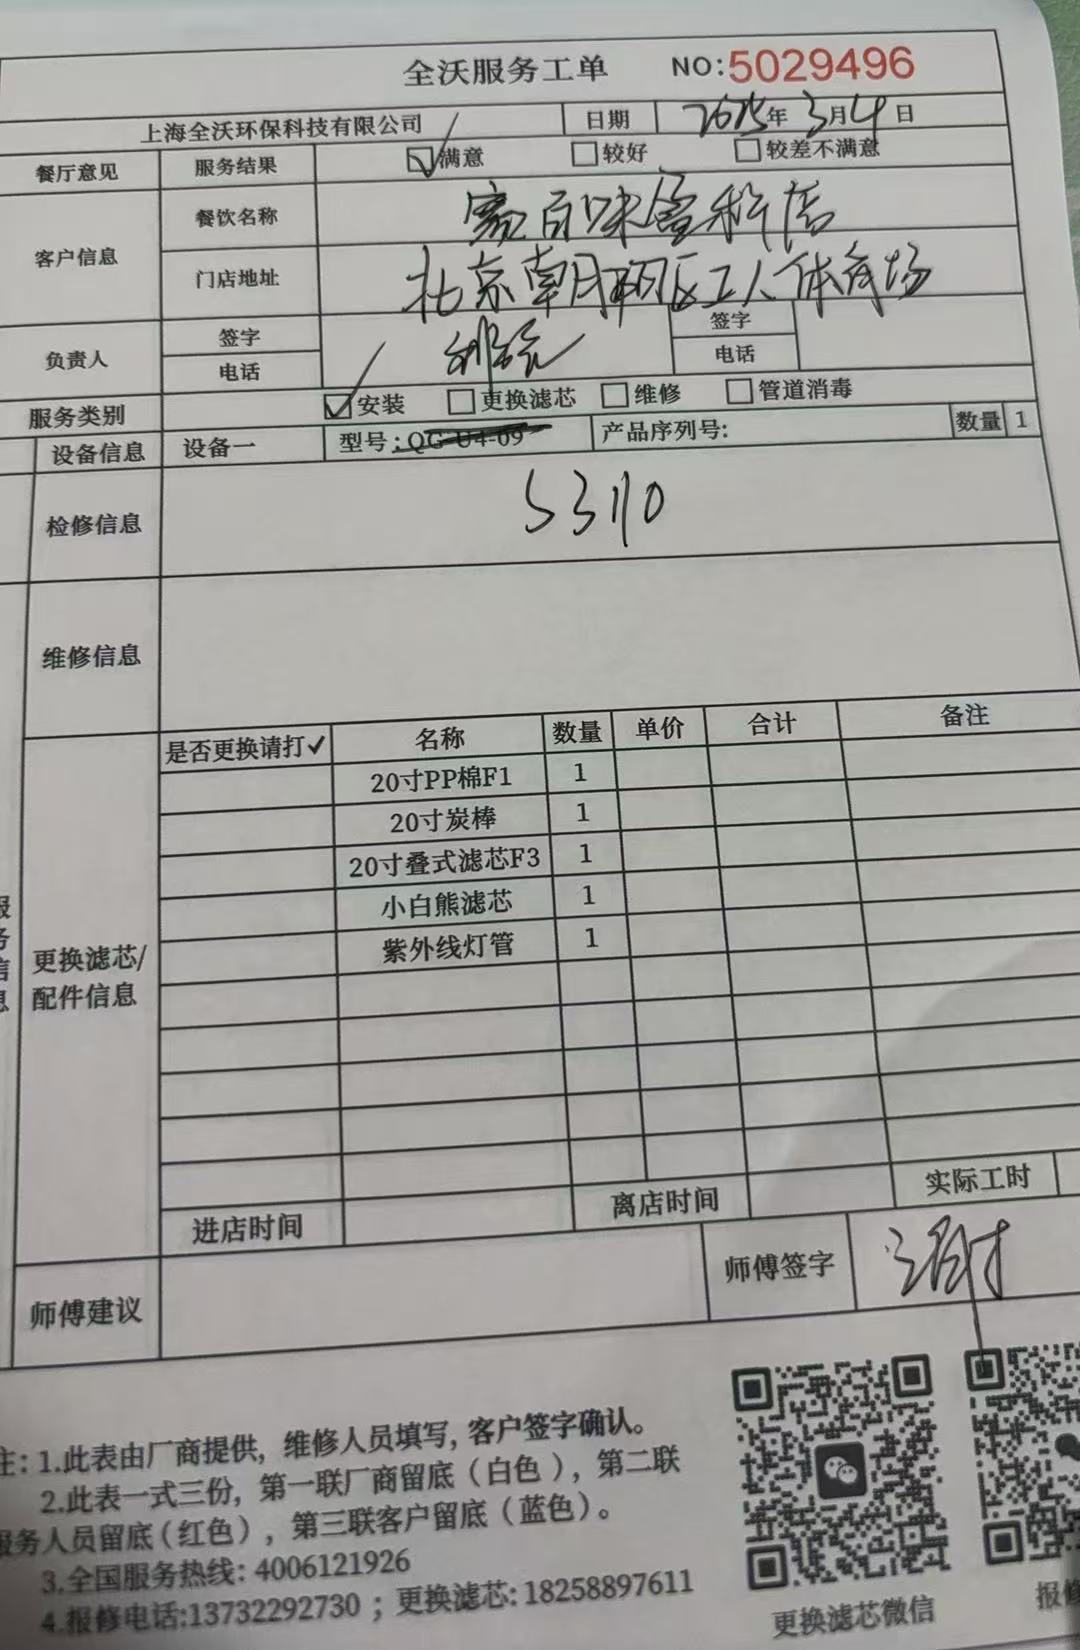 全沃服务工单 NO:5029496
上海全沃环保科技有限公司 日期 2025年3月4日
餐厅意见 服务结果 满意 较好 较差不满意
客户信息 餐饮名称
门店地址 北京朝阳区工人体育场
负责人 签字 签字
电话 电话
服务类别 安装 更换滤芯 维修 管道消毒
设备信息 设备一 型号:QG-U4-09 产品序列号: 数量 1
检修信息 53110
维修信息
是否更换请打✓ 名称 数量 单价 合计 备注
20寸PP棉F1 1
20寸炭棒 1
20寸叠式滤芯F3 1
小白熊滤芯 1
紫外线灯管 1
更换滤芯/
配件信息
进店时间 离店时间 实际工时
师傅建议 师傅签字
注: 1.此表由厂商提供, 维修人员填写, 客户签字确认。
2.此表一式三份, 第一联厂商留底 (白色), 第二联
服务人员留底 (红色), 第三联客户留底 (蓝色)。
3.全国服务热线: 4006121926
4.报修电话:13732292730 ; 更换滤芯: 18258897611
更换滤芯微信
报修